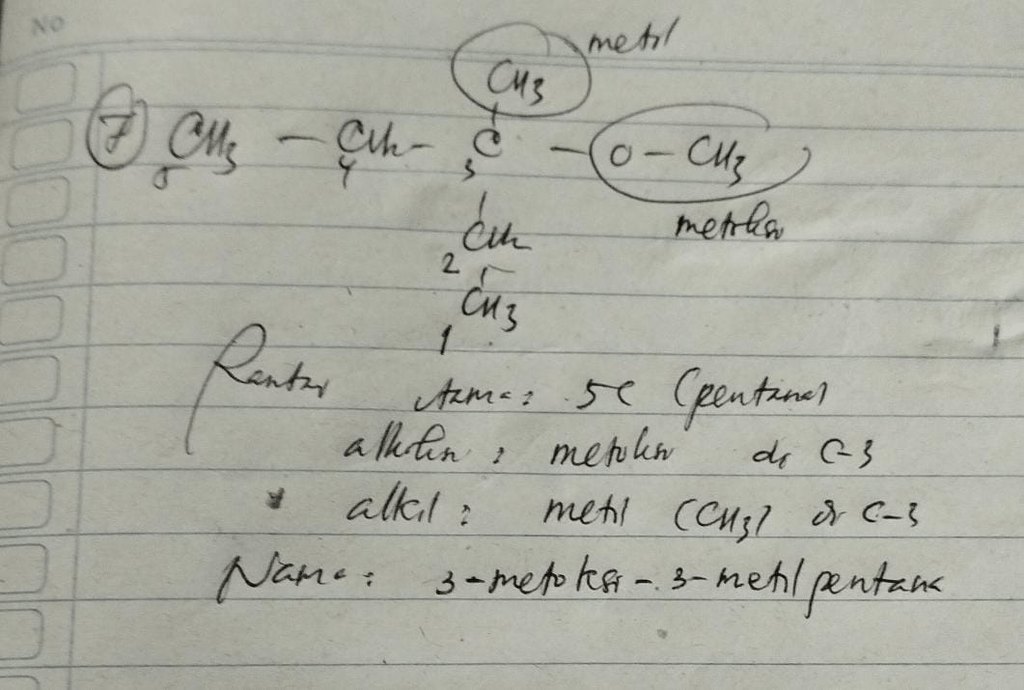 NO
metil
CH3
7 CH3 - CH2 - C - O - CH3
5 4 3
metoksi
CH2
2
CH3
1
Rantai utama: 5C (pentana)
alkoksi: metoksi di C-3
alkil: metil (CH3) di C-3
Nama: 3-metoksi-3-metilpentana